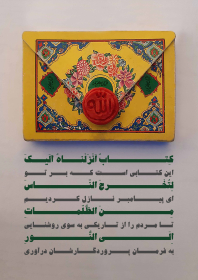 الله
كِتَابٌ أَنْزَلْنَاهُ إِلَيْكَ
این کتابی است که بر تو
لِتُخْرِجَ النَّاسَ
ای پیامبر نازل کردیم
مِنَ الظُّلُمَاتِ
تا مردم را از تاریکی به سوی روشنایی
إِلَى النُّورِ
به فرمان پروردگارشان درآوری